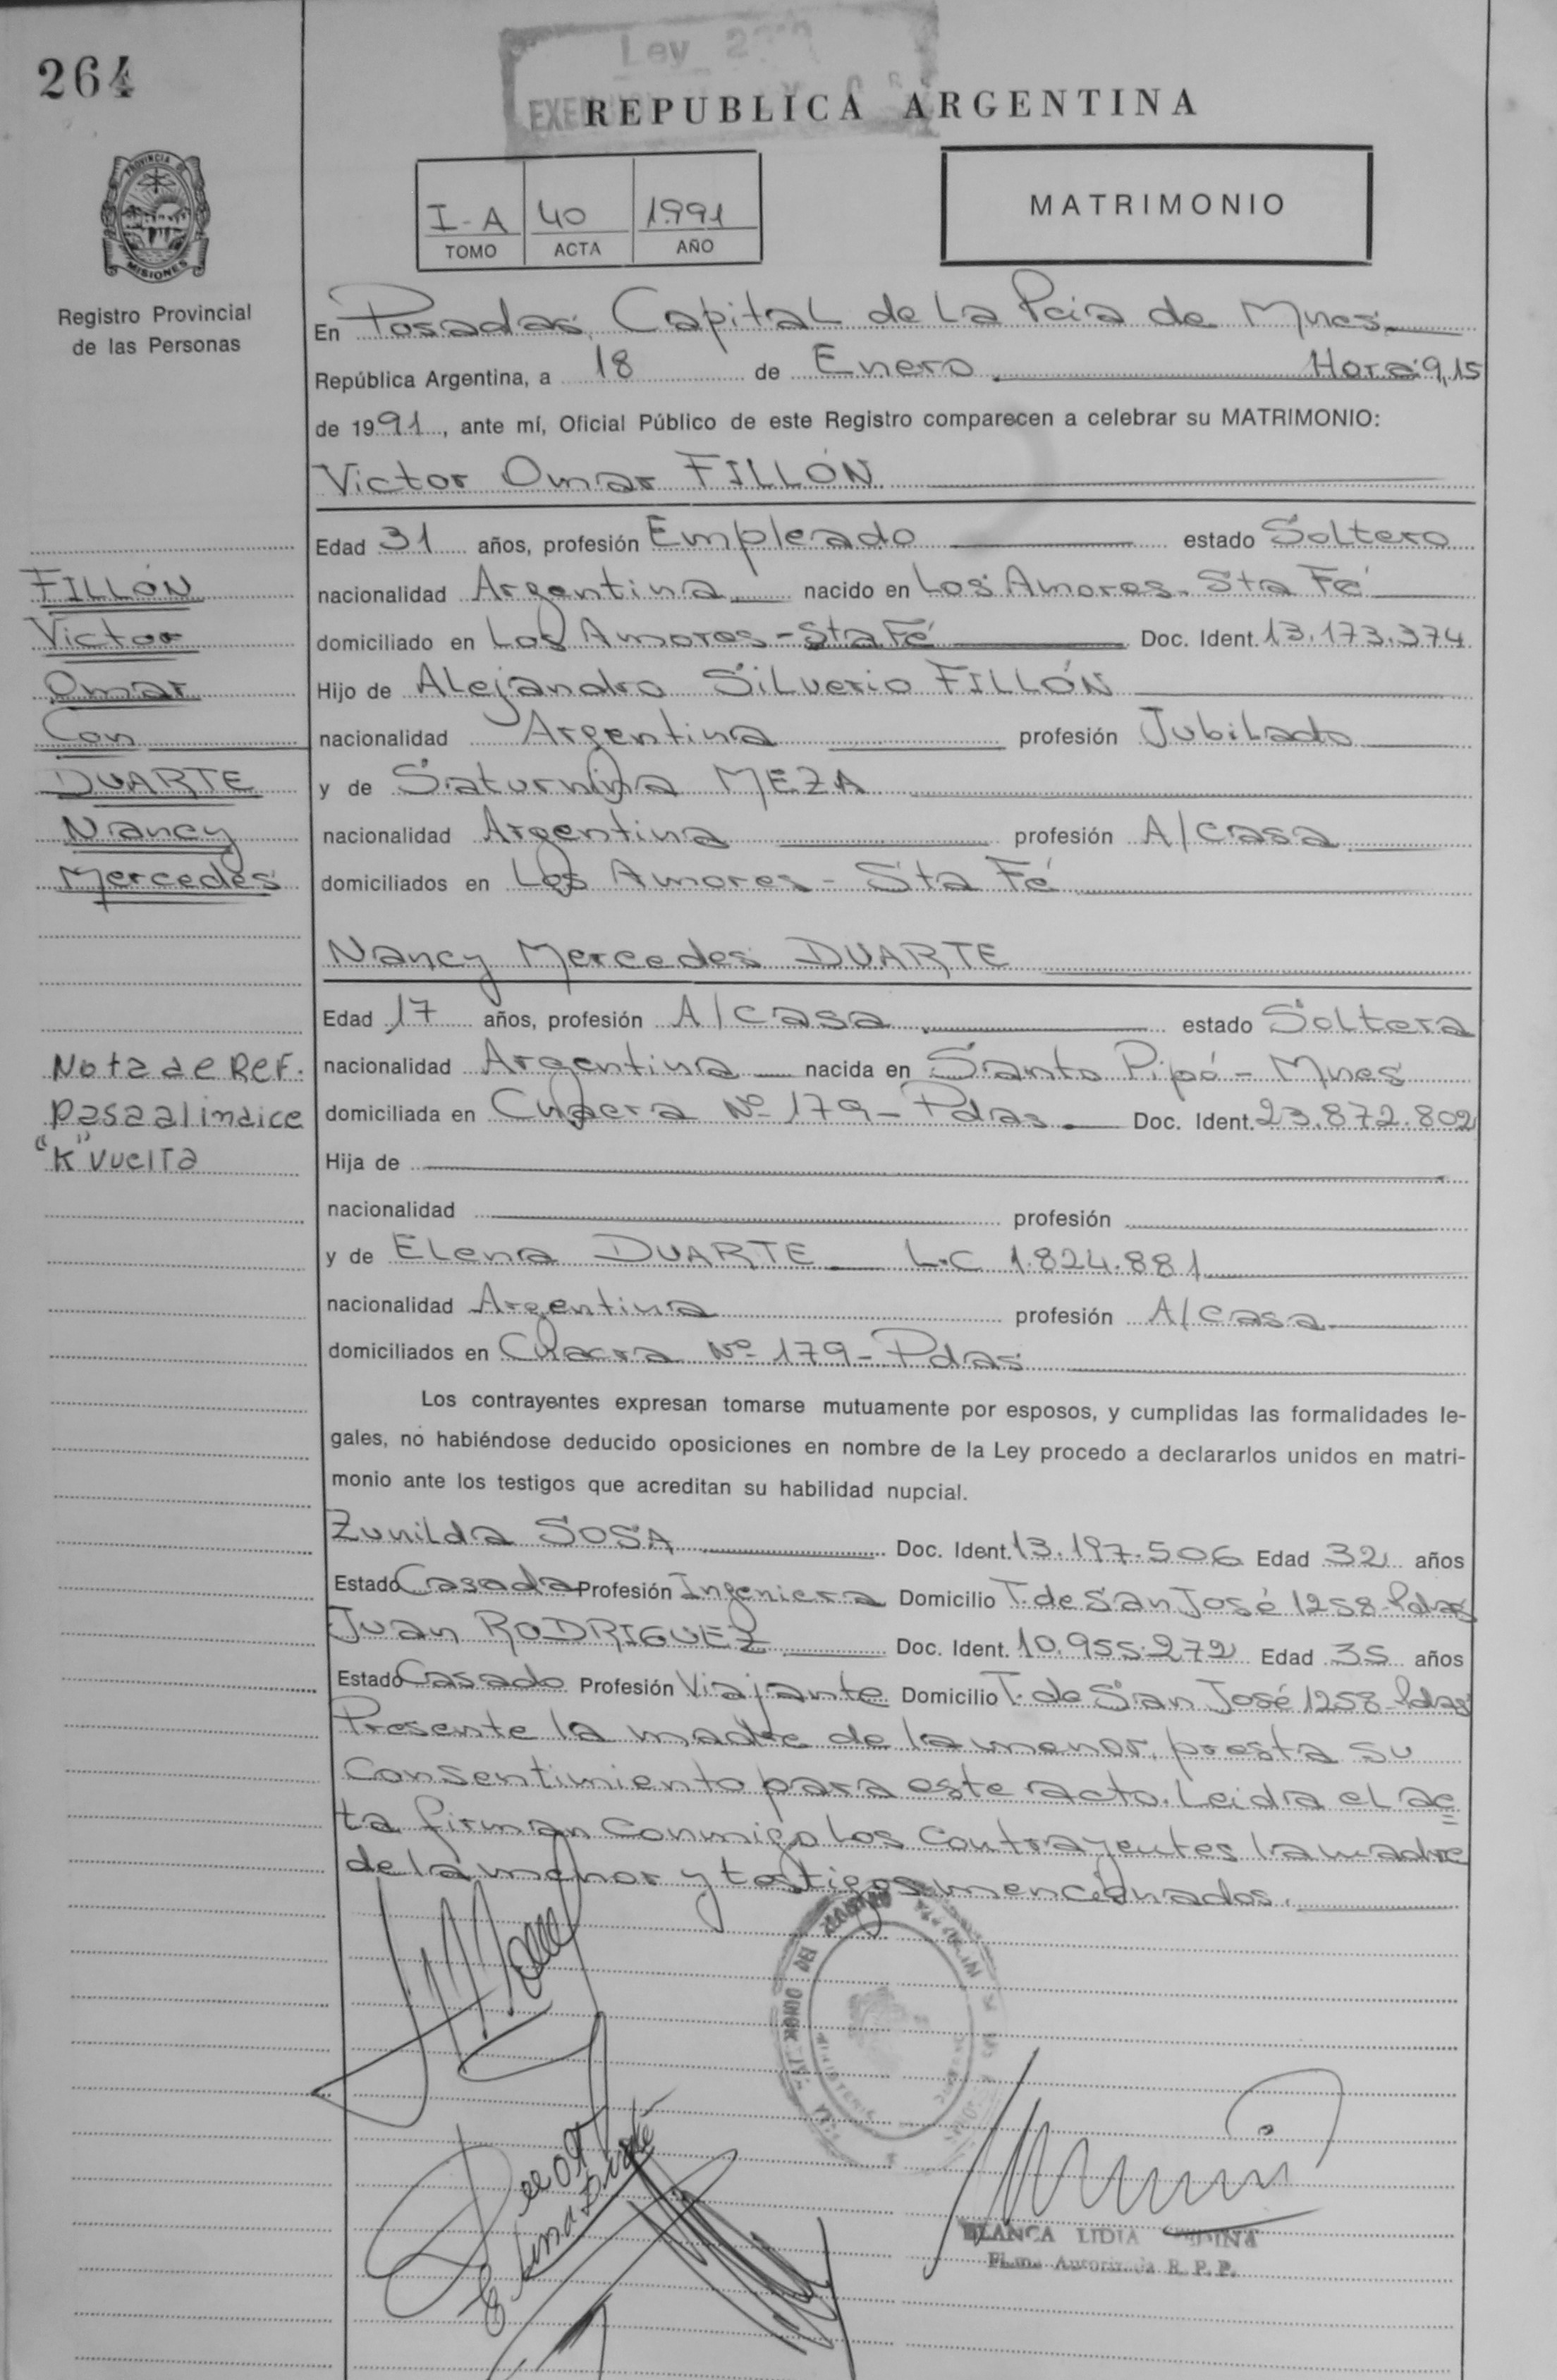 264
Ley
REPUBLICA ARGENTINA
PROVINCIA DE
MISIONES
Registro Provincial
de las Personas
I-A 40 1991
TOMO ACTA AÑO
MATRIMONIO
En Posadas, Capital de La Pcia de Mnes.
República Argentina, a 18 de Enero Hora: 9,15
de 1991, ante mí, Oficial Público de este Registro comparecen a celebrar su MATRIMONIO:
Victor Omar FILLÓN
Edad 31 años, profesión Empleado estado Soltero
nacionalidad Argentina nacido en Los Amores. Sta Fé
domiciliado en Los Amores - Sta Fé Doc. Ident. 13.173.374
Hijo de Alejandro Silverio FILLÓN
nacionalidad Argentina profesión Jubilado
y de Saturnina MEZA
nacionalidad Argentina profesión A/casa
domiciliados en Los Amores - Sta Fé
FILLÓN
Victor
Omar
Con
DUARTE
Nancy
Mercedes
Nancy Mercedes DUARTE
Edad 17 años, profesión A/casa estado Soltera
nacionalidad Argentina nacida en Santo Pipó - Mnes
domiciliada en Chacra Nº 179 - Pdas Doc. Ident. 23.872.802
Hija de
nacionalidad profesión
y de Elena DUARTE L.C 1.824.881
nacionalidad Argentina profesión A/casa
domiciliados en Chacra Nº 179 - Pdas
Nota de Ref.
pasa al indice
"K" vuelta
Los contrayentes expresan tomarse mutuamente por esposos, y cumplidas las formalidades le-
gales, no habiéndose deducido oposiciones en nombre de la Ley procedo a declararlos unidos en matri-
monio ante los testigos que acreditan su habilidad nupcial.
Zunilda SOSA Doc. Ident. 13.197.506 Edad 32 años
Estado Casada Profesión Ingeniera Domicilio T. de San José 1258 - Pdas
Juan RODRIGUEZ Doc. Ident. 10.955.272 Edad 35 años
Estado Casado Profesión Viajante Domicilio T. de San José 1258 - Pdas
Presente la madre de la menor, presta su
Consentimiento para este acto. Leida el ac=
ta firman conmigo los contrayentes la madre
de la menor y testigos mencionados.
BLANCA LIDIA
Firma Autorizada R. P. P.